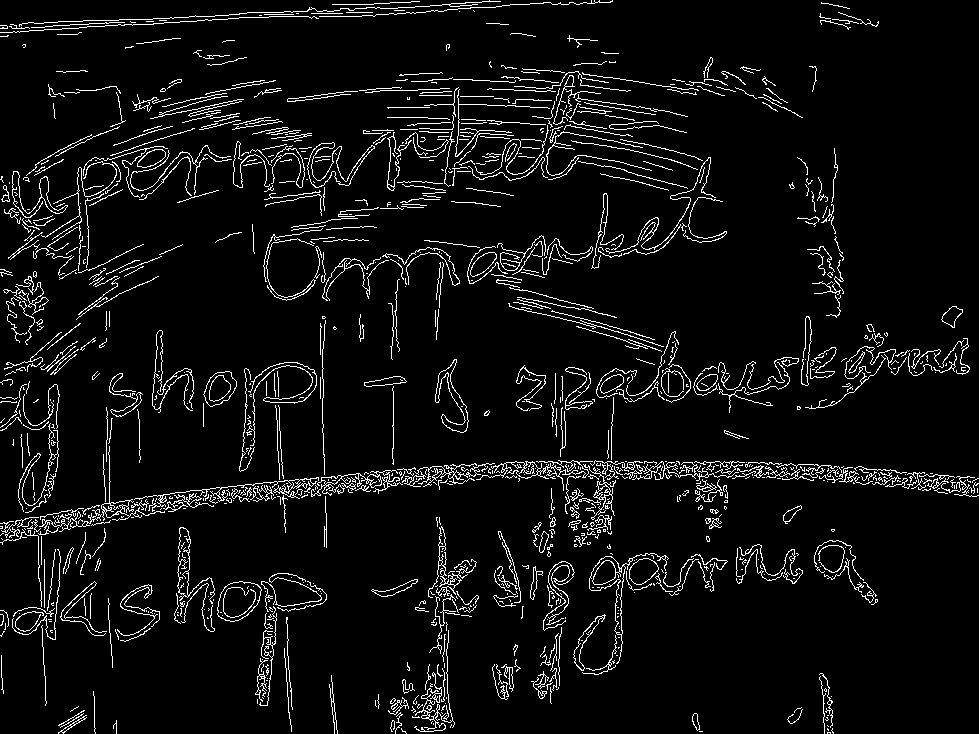 upermarket
market
oy shop - s. z zabawkami
okshop - księgarnia